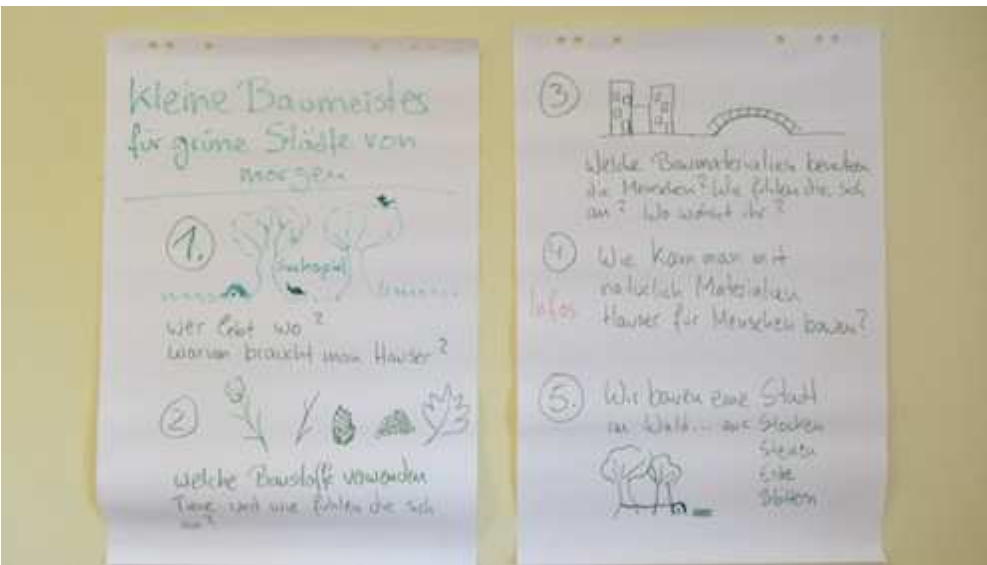 Kleine Baumeister
für grüne Städte von
morgen
1.
Suchspiel
wer lebt wo?
warum braucht man Häuser?
2
welche Baustoffe verwenden
Tiere und wie fühlen die sich
an?
3
Welche Baumaterialien benutzen
die Menschen? Wie fühlen die sich
an? Wo wohnt ihr?
4
Wie kann man mit
Infos
natürlich Materialien
Häuser für Menschen bauen?
5.
Wir bauen eine Stadt
im Wald... aus Stöcken
Steinen
Erde
Blättern